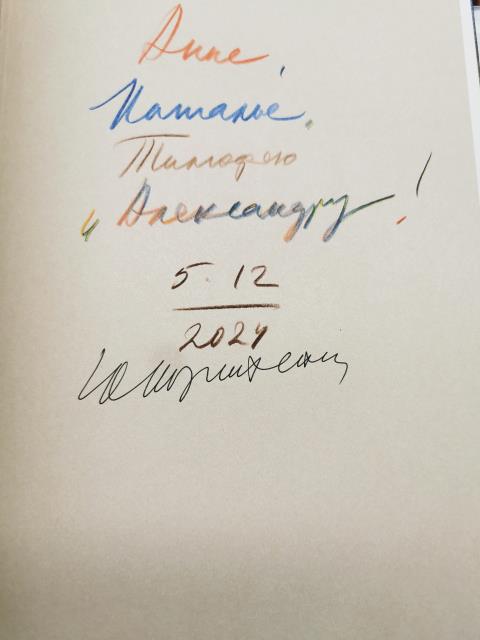 Анне,
Наталье,
Тимофею
и Александру!
5.12
2024